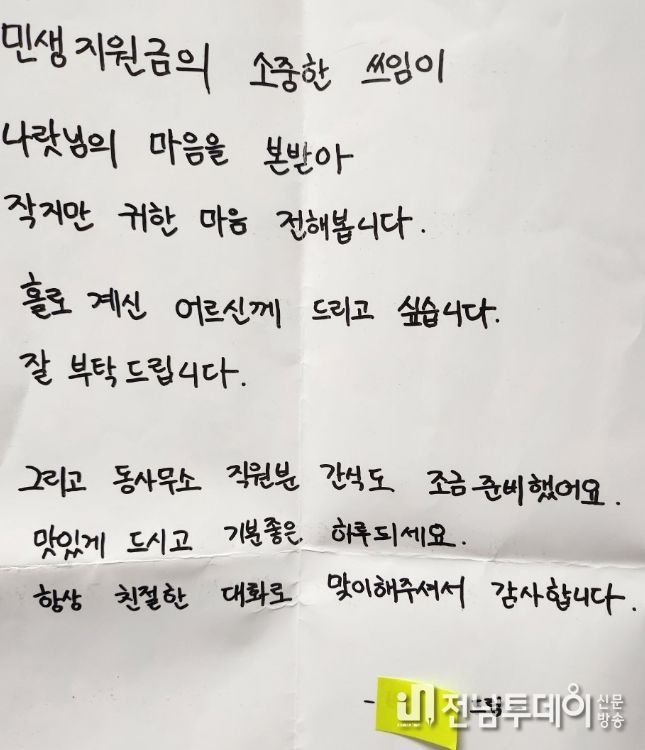 민생지원금의 소중한 쓰임이
나랏님의 마음을 본받아
작지만 귀한 마음 전해봅니다.
홀로 계신 어르신께 드리고 싶습니다.
잘 부탁드립니다.
그리고 동사무소 직원분 간식도 조금준비했어요.
맛있게 드시고 기분좋은 하루되세요.
항상 친절한 대화로 맞이해주셔서 감사합니다.
- 드림
전남투데이 신문방송